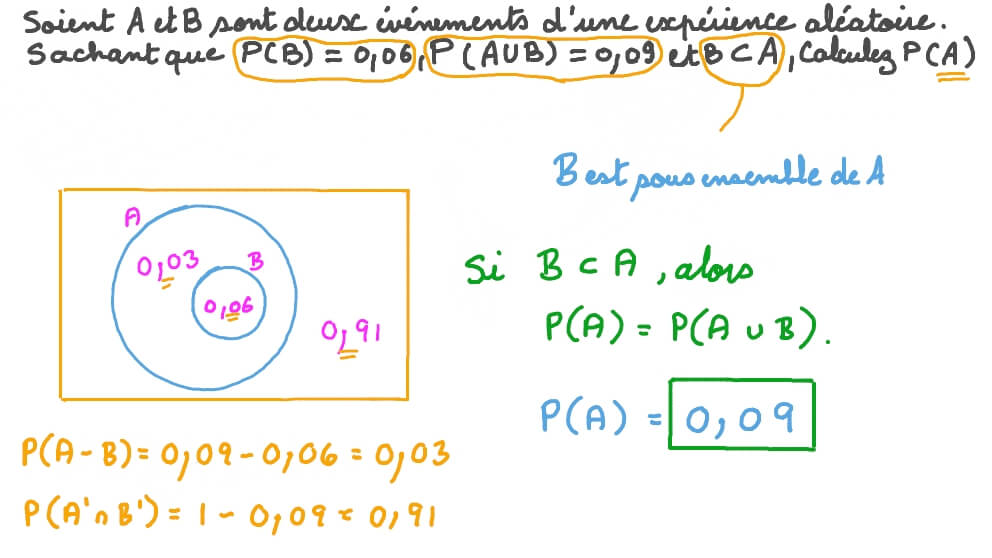 Soient A et B sont deux événements d'une expérience aléatoire.
Sachant que P(B) = 0,06, P(A∪B) = 0,09 et B⊂A, Calculez P(A)
B est sous ensemble de A
A
0,03
B
0,06
0,91
Si B ⊂ A, alors
P(A) = P(A ∪ B).
P(A) = 0,09
P(A-B) = 0,09 - 0,06 = 0,03
P(A'∩B') = 1 - 0,09 = 0,91